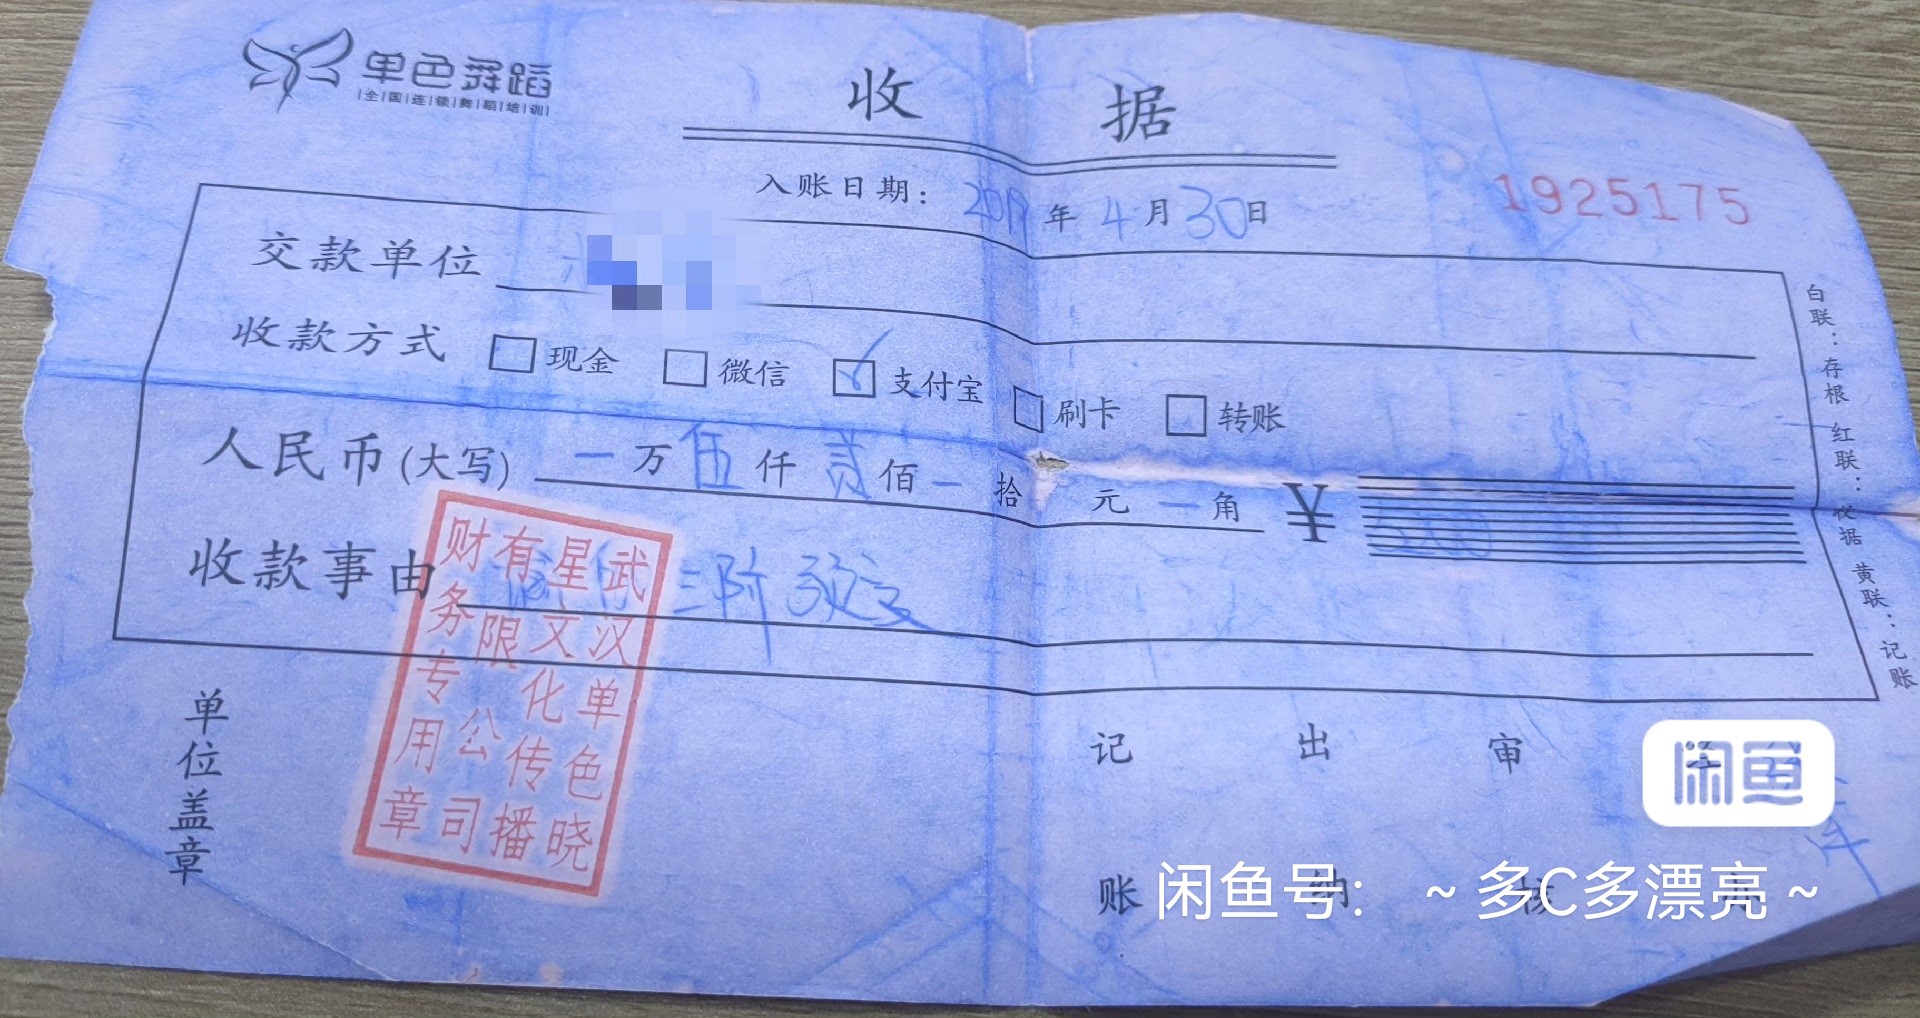 单色舞蹈
全国连锁舞蹈培训
收据
入账日期：2019年4月30日
1925175
交款单位
收款方式 现金 微信 ✓支付宝 刷卡 转账
人民币(大写) 一万伍仟贰佰一拾 元一角 ¥5200
收款事由 三阶
武汉单色晓星文化传播有限公司财务专用章
单位盖章
记账 出纳 审核
白联：存根 红联：收据 黄联：记账
闲鱼
闲鱼号: ~多C多漂亮~